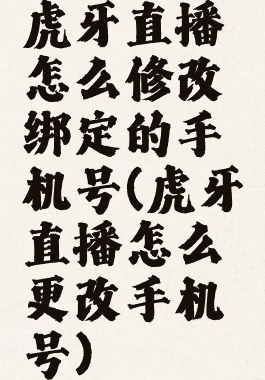 虎牙直播
怎么修改
绑定的手
机号(虎牙
直播怎么
更改手机
号)